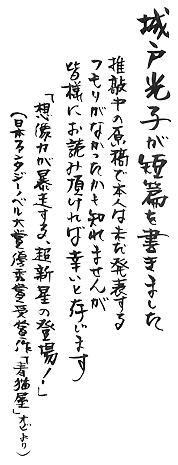 城戸光子が短篇を書きました
推敲中の原稿で本人は未だ発表する
つもりがなかったかも知れませんが
皆様にお読み頂ければ幸いと存じます
「想像力が暴走する、超新星の登場!」
(日本ファンタジーノベル大賞優秀賞受賞作「青猫屋」オビより)